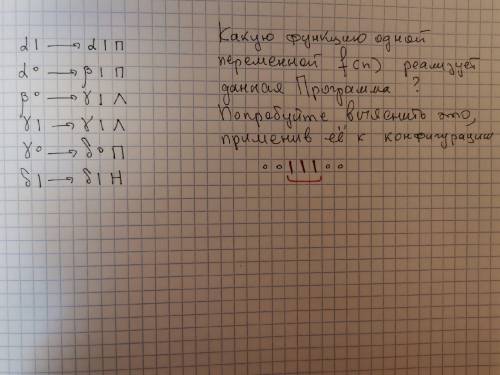 α| → α|П
α° → β|П
β° → γ|Л
γ| → γ|Л
γ° → δ°П
δ| → δ|Н
Какую функцию одной
переменной f(n) реализует
данная Программа ?
Попробуйте выяснить это,
применив её к конфигурации
∘ ∘ | | | ∘ ∘